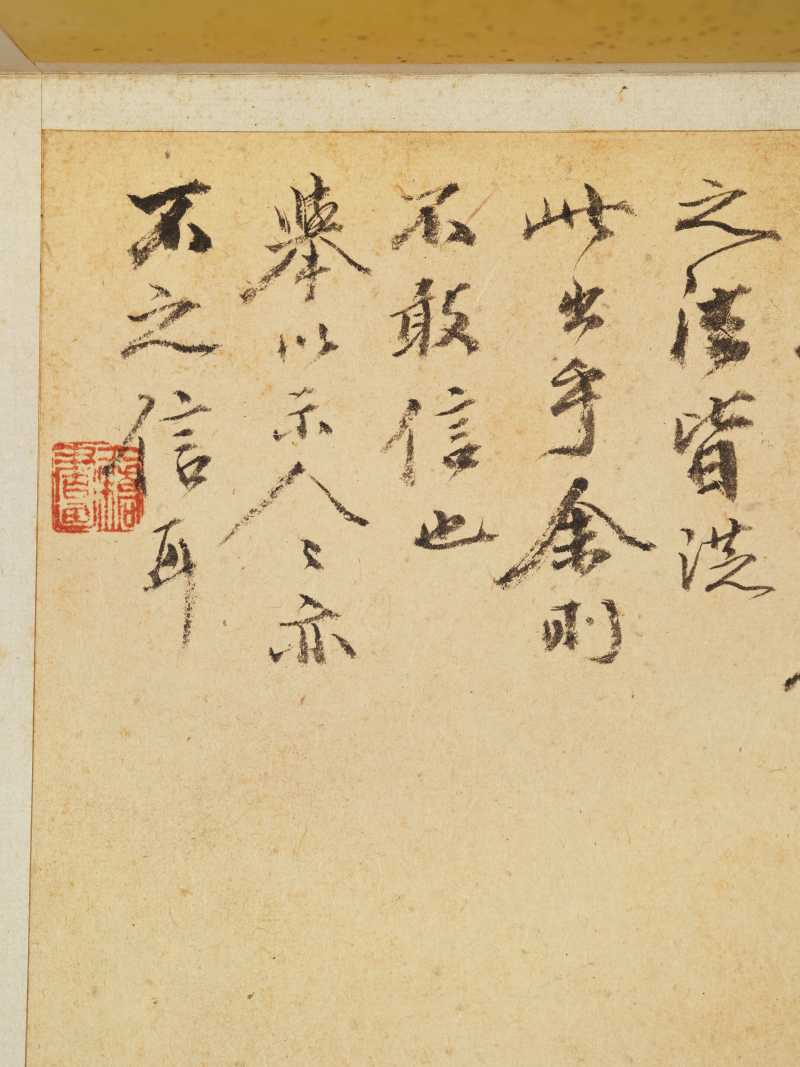 之皆洗
此出乎余則
不敢信也
舉以示人々亦
不之信耳